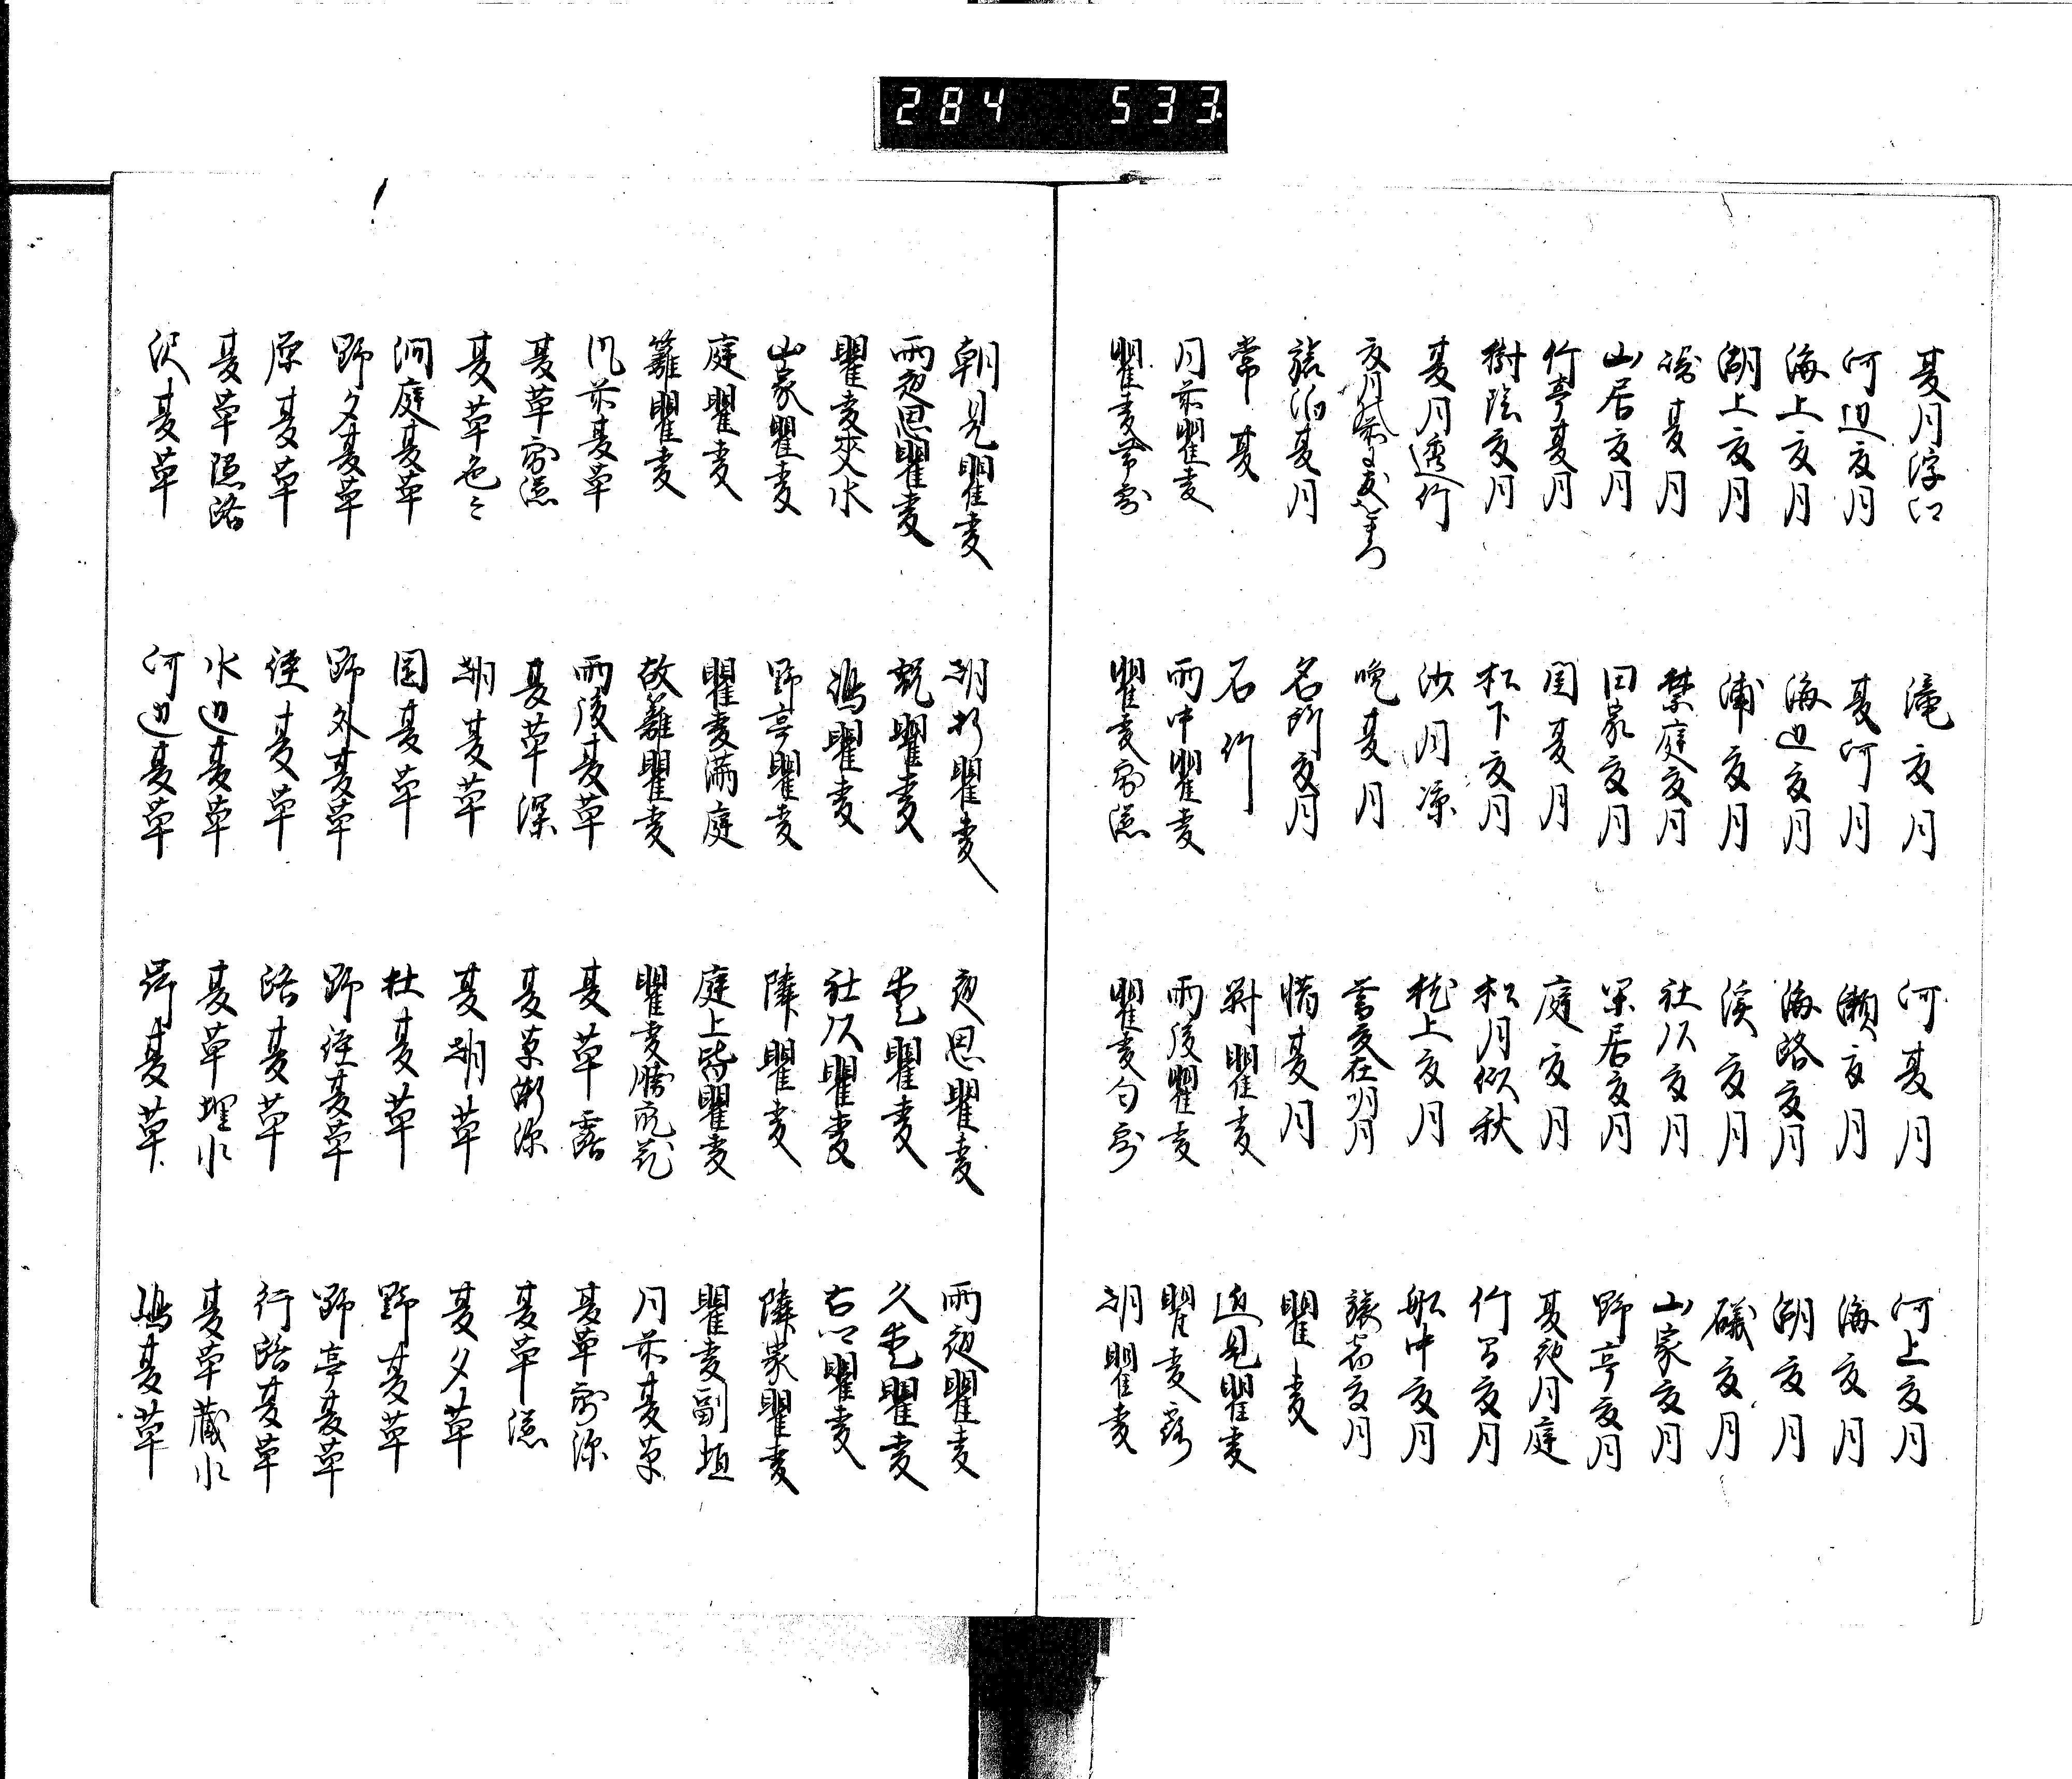 夏月浮江　滝夏月　河夏月　河上夏月
河辺夏月　夏河月　瀬夏月　海夏月
海上夏月　海辺夏月　海路夏月　湖夏月
湖上夏月　浦夏月　渓夏月　礒夏月
夏月　禁庭夏月　社頭夏月　山家夏月
山居夏月　田家夏月　閑居夏月　野亭夏月
竹亭夏月　閨夏月　庭夏月　夏夜月庭
樹陰夏月　松下夏月　松月似秋　竹間夏月
夏月透竹　沙月涼　枕上夏月　船中夏月
夏月　晩夏月　在明月　旅宿夏月
旅泊夏月　名所夏月　惜夏月　瞿麦
常夏　石竹　瞿麦　近見瞿麦
月前瞿麦　雨中瞿麦　雨後瞿麦　瞿麦露
瞿麦帯露　瞿麦露滋　瞿麦匂露　朝瞿麦
朝見瞿麦　朝折瞿麦　夜思瞿麦　雨夜瞿麦
雨夜思瞿麦　翫瞿麦　愛瞿麦　久愛瞿麦
瞿麦夾水　嶋瞿麦　社頭瞿麦　古郷瞿麦
山家瞿麦　野亭瞿麦　隣瞿麦　隣家瞿麦
庭瞿麦　瞿麦満庭　庭上皆瞿麦　瞿麦副垣
籬瞿麦　故籬瞿麦　瞿麦勝衆花　月前夏草
風前夏草　雨後夏草　夏草露　夏草露深
夏草露滋　夏草深　夏草漸深　夏草滋
夏草色々　朝夏草　夏朝草　夏夕草
澗庭夏草　園夏草　杜夏草　野夏草
野夕夏草　野外夏草　野径夏草　野亭夏草
原夏草　径夏草　路夏草　行路夏草
夏草隠路　水辺夏草　夏草埋水　夏草蔵水
沢夏草　河辺夏草　夏草　嶋夏草
284 533